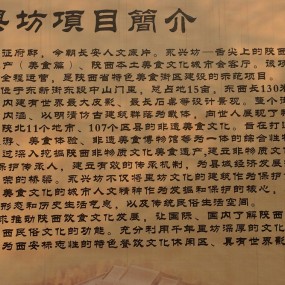 兴坊項目簡介
征府邸，今朝长安人文底片。永兴坊—舌尖上的陕西
产（美食篇）、陕西本土美食文化城市会客厅。该项
全程运营，是陕西省特色美食街区建设的示范项目。
位于东新街东段中山门里，总占地15亩，东西长130米
内建有世界最大皮影、最长石桌等设计景观。整个街
内涵，以明清仿古建筑群落为载体，向世人展现了
陕北11个地市、107个区县的非遗美食文化。首在打
游、美食体验、非遗美食博物馆等为一体的综合
过深入挖掘陕西非物质文化美食遗产、齐聚非物质文
保护传承人，建立有效的传承机制，为县域经济发展
荣的桥梁。永兴坊不仅将里坊文化的建筑作为保护
美食文化的城市人文精神作为发掘和保护的核心，
形态和历史生活气息，以及传统民俗生活空间。
求推动陕西饮食文化发展，让国际、国内了解陕西
西民俗文化的功能。充分利用千年里坊深厚的文化
为西安标志性的特色餐饮文化休闲区、具有世界影